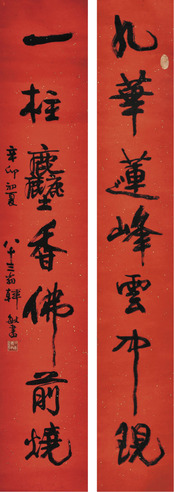 九華蓮峰雲中現
一柱麈香佛前燒
辛卯初夏
八十三翁韓敏書